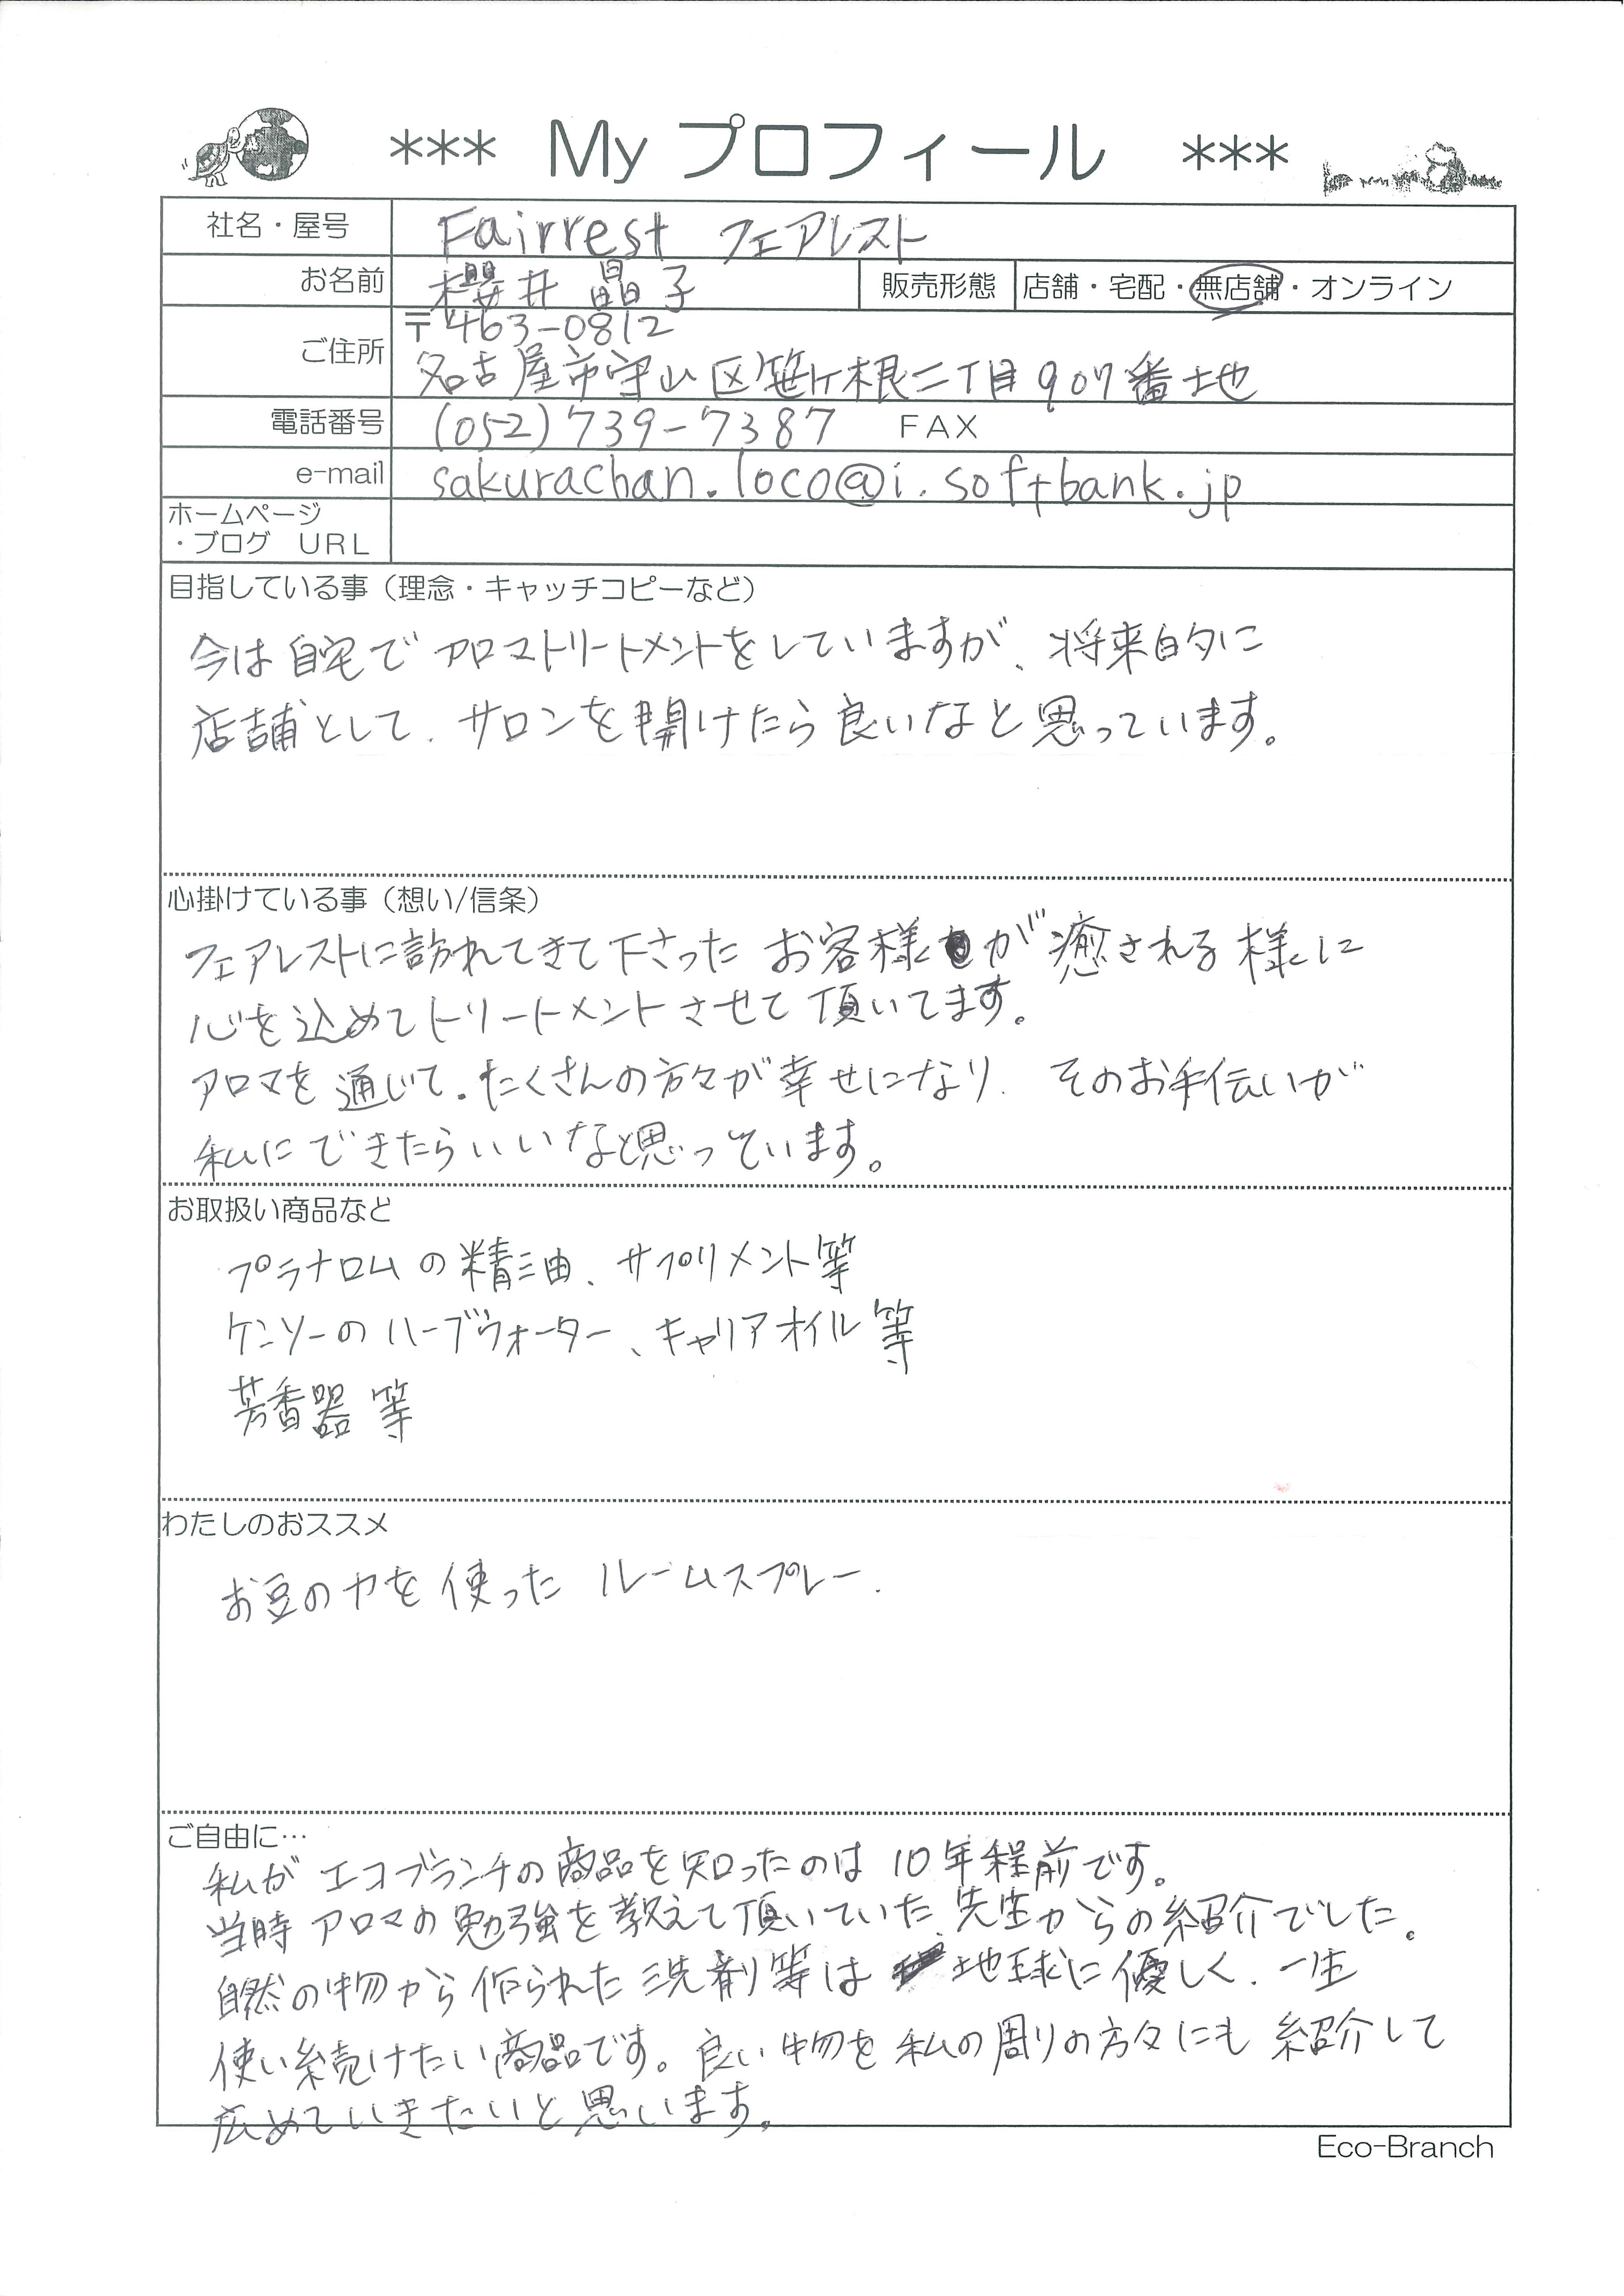 *** My プロフィール ***
社名・屋号 Fairrest フェアレスト
お名前 櫻井 晶子 販売形態 店舗・宅配・無店舗・オンライン
ご住所 〒463-0812
名古屋市守山区笹ヶ根二丁目907番地
電話番号 (052)739-7387 FAX
e-mail sakurachan.loco@i.softbank.jp
ホームページ
・ブログ URL
目指している事(理念・キャッチコピーなど)
今は自宅でアロマトリートメントをしていますが、将来的に
店舗として、サロンを開けたら良いなと思っています。
心掛けている事(想い/信条)
フェアレストに訪れてきて下さったお客様が癒される様に
心を込めてトリートメントさせて頂いてます。
アロマを通じて、たくさんの方々が幸せになり、そのお手伝いが
私にできたらいいなと思っています。
お取扱い商品など
プラナロムの精油、サプリメント等
ケンソーのハーブウォーター、キャリアオイル等
芳香器等
わたしのおススメ
お豆の力を使ったルームスプレー.
ご自由に…
私がエコブランチの商品を知ったのは10年程前です。
当時アロマの勉強を教えて頂いていた先生からの紹介でした。
自然の物から作られた洗剤等は地球に優しく、一生
使い続けたい商品です。良い物を私の周りの方々にも紹介して
広めていきたいと思います。
Eco-Branch